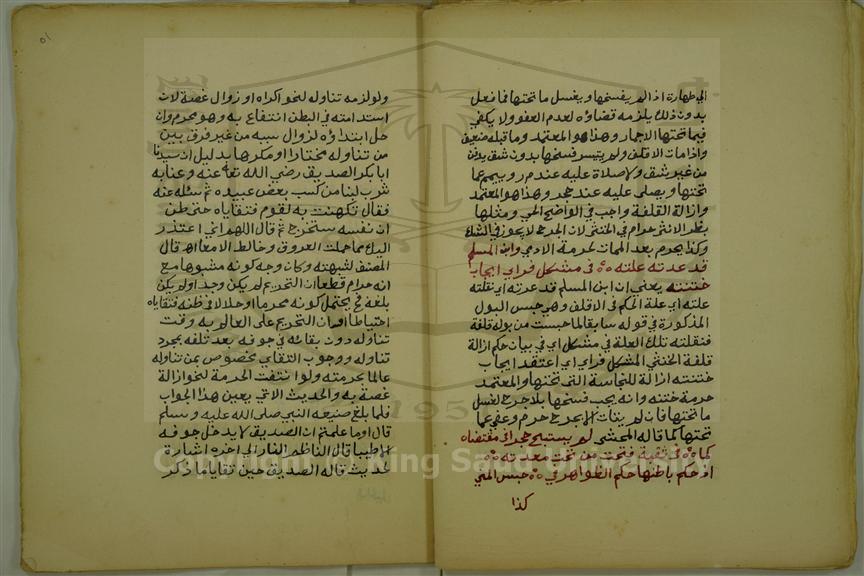 الي طهارة اذا لم يفسخها ويغسل ما تحتها فما فعل
بدون ذلك يلزمه قضاؤه لعدم العفو ولا يكفي
فيما تحتها الاجمار وهذا هو المعتمد وما قبله ضعيف
واذا مات الاقلف ولم يتيسر فسخها بدون شق يدفن
من غير شق ولا صلاة عليه عند م ر وييمم عما
تحتها ويصلى عليه عند حجر وهذا هو المعتمد
وازالة القلفة واجب في الواضح الحي ومثلها
بظر الانثى حرام في الخنثى لان الجرح لا يجوز في الشك
وكذا يحرم بعد الممات لحرمة الادمي وابن المسلم
قد عدته علته في مشكل فراي ايجاب
ختنته يعني ان ابن المسلم قد عدته اي نقلته
علته اي علة الحكم في الاقلف وهي حبس البول
المذكورة في قوله سابقا لما حبست من بوله قلفة
فنقلته تلك العلة في مشكل اي في بيان حكم ازالة
قلفة الخنثى المشكل فراي اي اعتقد ايجاب
ختنته ازالة للنجاسة التي تحتها والمعتمد
حرمة ختنه وانه يجب فسخها بلا جرح لغسل
ما تحتها فان لم يتات الا بجرح حرم وعفي عما
تحتها كما قاله المحشي لم يستبح حجرا في مقتضاه
كما في ثقبة فتحت من تحت معدته
اذ حكم باطنها حكم الظواهر في حبس المني
كذا
٥١
ولو لزمه تناوله لنحو اكراه او زوال غصة لان
استدامته في البطن انتفاع به وهو محرم وان
حل ابتداؤه لزوال سببه من غير فرق بين
من تناوله مختارا او مكرها بدليل ان سيدنا
ابا بكر الصديق رضي الله تعا عنه وعنا به
شرب لبنا من كسب بعض عبيده ثم سئله عنه
فقال تكهنت به لقوم فتقاياه حتى ظن
ان نفسه ستخرج ثم قال اللهم اني اعتذر
اليك مما حملت العروق وخالط الامعاء قال
المصنف لشبهته وكان وجه كونه مشبوها مع
انه حرام قطعا ان التحريم لم يكن وجد او لم يكن
بلغه فح يحتمل كونه محرما او حلالا في ظنه فتقاياه
احتياطا او ان التحريم على العالم به وقت
تناوله دون بقائه في جوفه بعد تلفه بمجرد
تناوله ووجوب التقايي مخصوص بمن تناوله
عالما بحرمته ولو انتفت الحرمة لنحو ازالة
غصة به والحديث الاتي يعين هذا الجواب
فلما بلغ صنيعه النبي صلى الله عليه وسلم
قال اوما علمتم ان الصديق لا يدخل جوفه
الا طيبا قال الناظم النار الى اخره اشارة
لحديث قاله الصديق حين تقايا ما ذكر
1957
Copyright © King Saud University